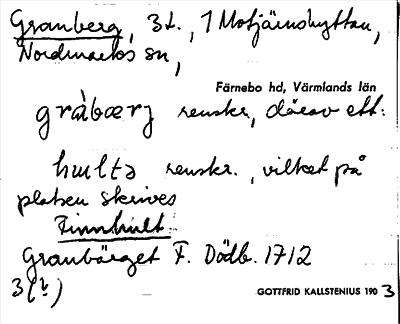 Granberg, 3 t., 1 Motjärnshyttan,
Nordmarks sn,
Färnebo hd, Värmlands län
gràbærj renskr., därav ett:
hulta renskr., vilket på
platsen skrives
Finnhult.
Granbärget F. Dödb. 1712
3(b)
GOTTFRID KALLSTENIUS 1903